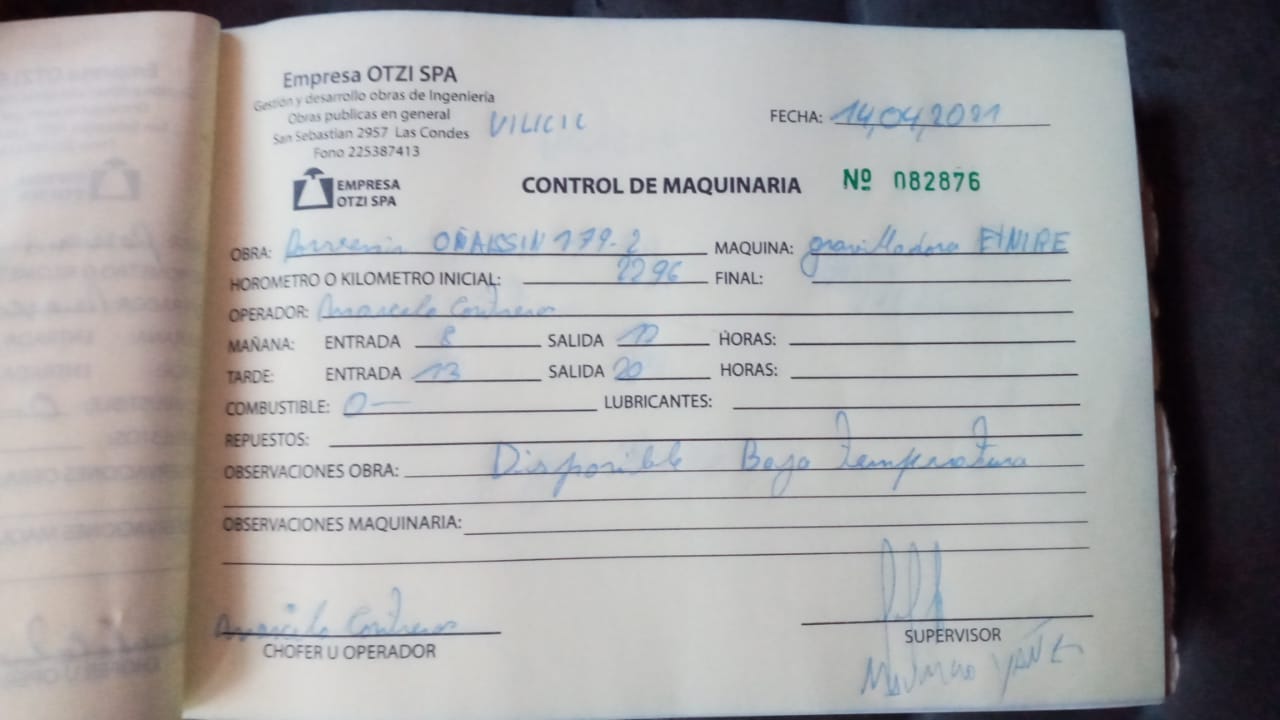 Empresa OTZI SPA
Gestión y desarrollo obras de Ingeniería
Obras publicas en general
San Sebastian 2957 Las Condes
Fono 225387413
VILICIC
FECHA: 14,04,2021
EMPRESA
OTZI SPA
CONTROL DE MAQUINARIA Nº 082876
OBRA: 179-2 MAQUINA: gravilladora ETNYRE
HOROMETRO O KILOMETRO INICIAL: 2296 FINAL:
OPERADOR: Marcelo Contreras
MAÑANA: ENTRADA 8 SALIDA 12 HORAS:
TARDE: ENTRADA 13 SALIDA 20 HORAS:
COMBUSTIBLE: 0— LUBRICANTES:
REPUESTOS:
OBSERVACIONES OBRA: Disponible Baja temperatura
OBSERVACIONES MAQUINARIA:
Marcelo Contreras
CHOFER U OPERADOR
SUPERVISOR
YAÑEZ